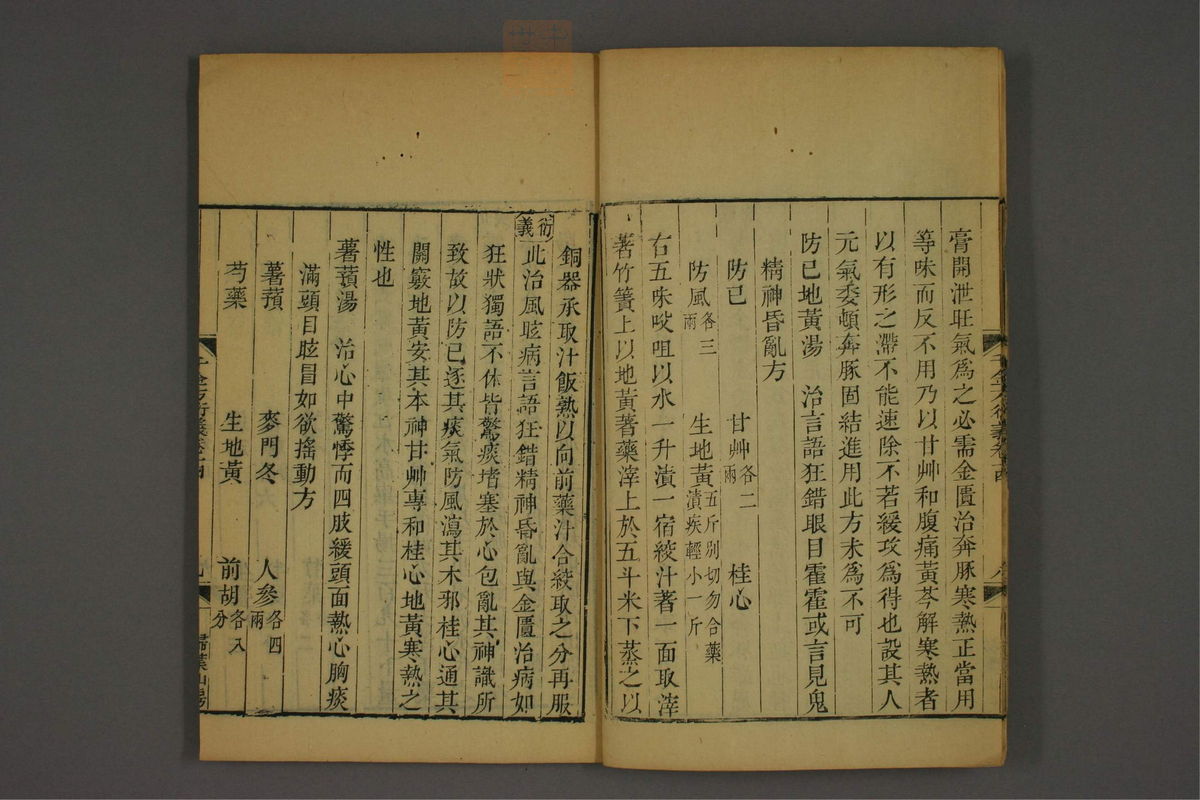 膏開泄旺氣為之必需金匱治奔豚寒熱正當用
等味而反不用乃以甘艸和腹痛黃芩解寒熱者
以有形之滯不能速除不若緩攻為得也設其人
元氣委頓奔豚固結進用此方未為不可
防已地黃湯　治言語狂錯眼目霍霍或言見鬼
精神昏亂方
防已　甘艸各二兩　桂心
防風各三兩　生地黃五斤別切勿合藥漬疾輕小一斤
右五味㕮咀以水一升漬一宿絞汁著一面取滓
著竹簀上以地黃著藥滓上於五斗米下蒸之以
銅器承取汁飯熟以向前藥汁合絞取之分再服
衍義 此治風眩病言語狂錯精神昏亂與金匱治病如
狂狀獨語不休皆驚痰堵塞於心包亂其神識所
致故以防已逐其痰氣防風瀉其木邪桂心通其
關竅地黃安其本神甘艸專和桂心地黃寒熱之
性也
薯蕷湯　治心中驚悸而四肢緩頭面熱心胸痰
滿頭目眩冒如欲搖動方
薯蕷　麥門冬　人參各四兩
芍藥　生地黃　前胡各八分
千金方衍義卷十四　九
掃葉山房